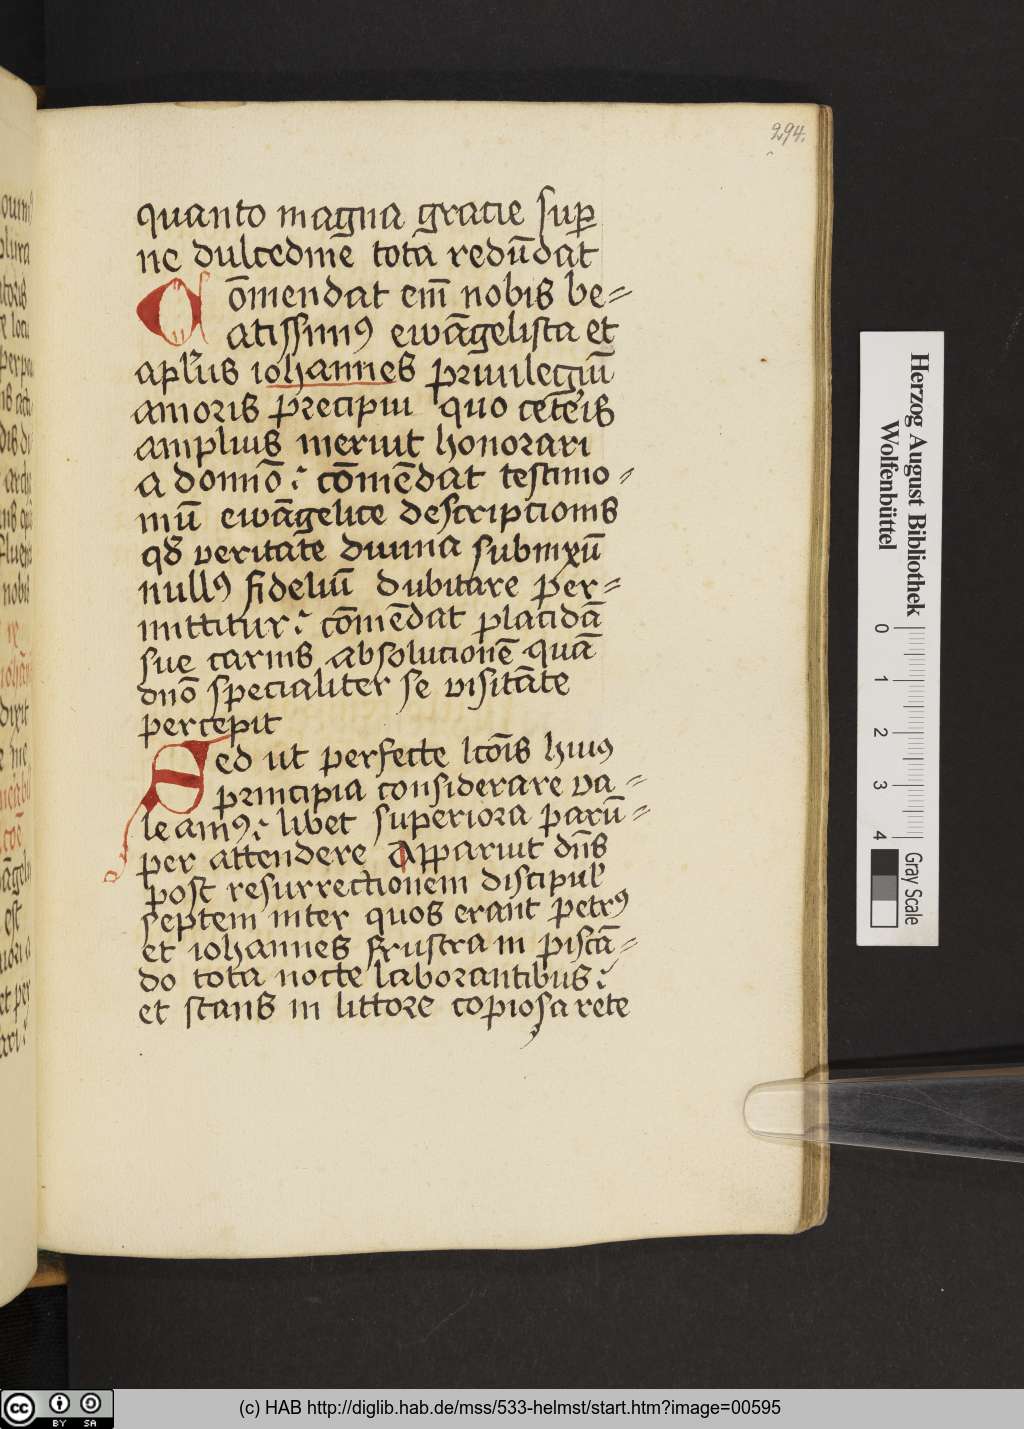 294.
quanto magna gracie sup̱
ne dulcedinē tota redūdat
Cōmendat em̄ nobis be=
atissimꝰ ewāgelista et
apl̄us iohannes priuilegiū
amoris precipui quo cēteis
amplius meruit honorari
a domnō: cōmēdat testimo=
niū ewāgelice descriptionis
qđ veritate diuina submixū
nullꝰ fideliū dubitare per=
mittitur: cōmēdat placidā
sue carnis absolucionē quā
dn̄o specialiter se visitāte
percepit
Sed ut perfecte lcōis huiꝰ
principia considerare va=
leamꝰ: libet superiora parū=
per attendere Apparuit dn̄s
post resurrectionem discipul̕
septem inter quos erant petrꝰ
et iohannes frustra in piscā=
do tota nocte laborantibus:
et stans in littore copiosa rete
Herzog August Bibliothek
Wolfenbüttel
0 1 2 3 4
Gray Scale
cc BY SA
(c) HAB http://diglib.hab.de/mss/533-helmst/start.htm?image=00595